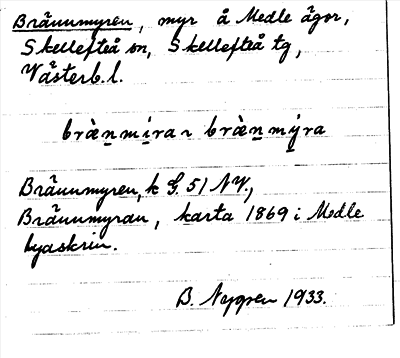 Brännmyren, myr å Medle ägor,
Skellefteå sn, Skellefteå tg,
Västerb. l.
bræ̀n̲mi̲ra ~ bræ̀n̲mý̲ra
Brännmyren, k G. 51 NV.,
Brännmyran, karta 1869 i Medle
byaskrin.
B. Nygren 1933.